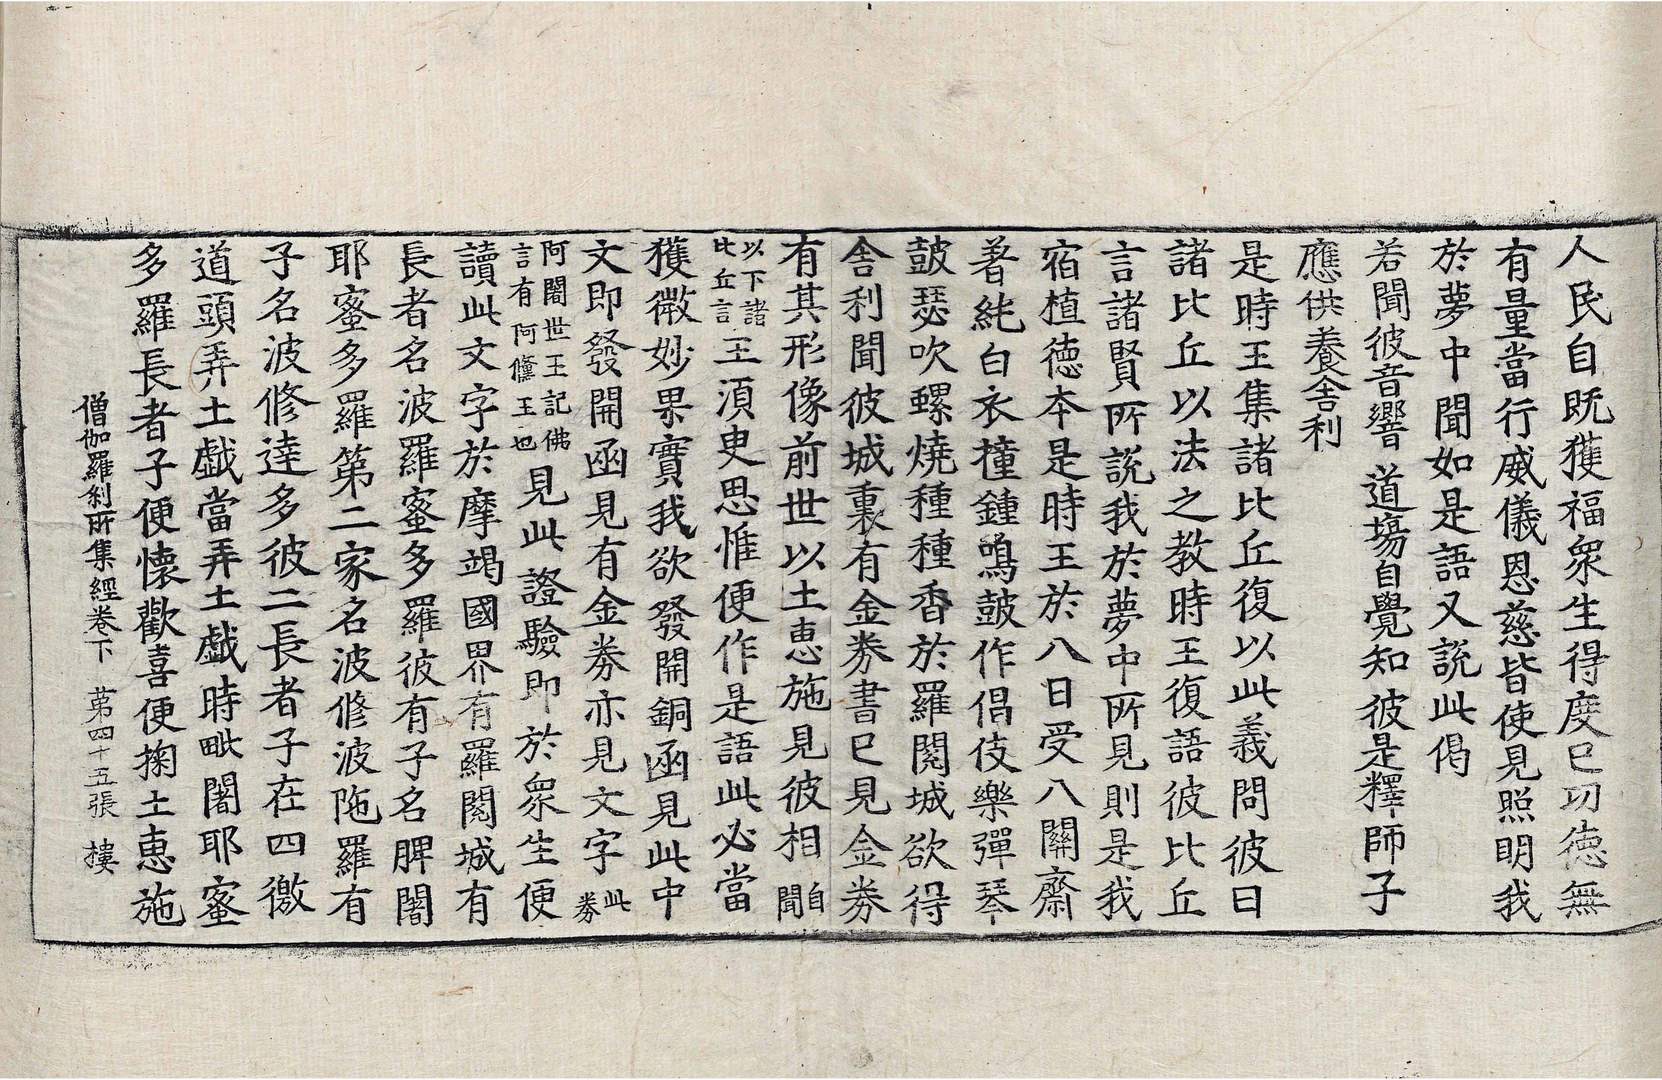 人民自既獲福衆生得度已功德無
有量當行威儀恩慈皆使見照明我
於夢中聞如是語又說此偈
若聞彼音響 道場自覺知 彼是釋師子
應供養舍利
是時王集諸比丘復以此義問彼曰
諸比丘以法之教時王復語彼比丘
言諸賢所說我於夢中所見則是我
宿植德本是時王於八日受八關齋
著純白衣撞鍾鳴鼓作倡伎樂彈琴
鼓瑟吹螺燒種種香於羅閱城欲得
舍利聞彼城裏有金券書已見金券
有其形像前世以土恵施見彼相自聞
以下諸比丘言王須臾思惟便作是語此必當
獲微妙果實我欲發開銅函見此中
文即發開函見有金券亦見文字此券
阿闍世王記佛言有阿儵王也見此證驗即於衆生便
讀此文字於摩竭國界有羅閱城有
長者名波羅蜜多羅彼有子名脾闍
耶蜜多羅第二家名波修波陁羅有
子名波修達多彼二長者子在四徼
道頭弄土戲當弄土戲時毗闍耶蜜
多羅長者子便懷歡喜便掬土恵施
僧伽羅刹所集經卷下 第四十五張 樓